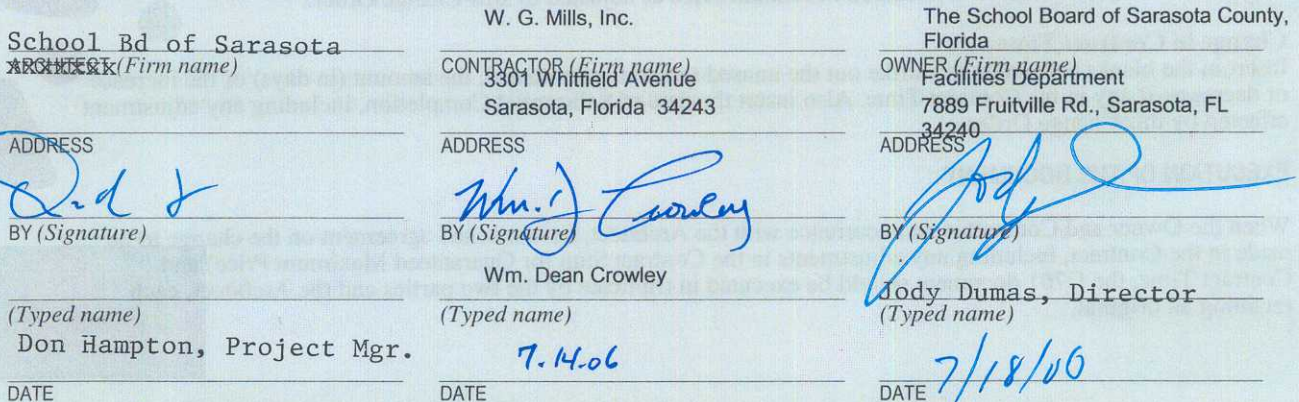 School Bd of Sarasota
ARCHITECT (Firm name)
ADDRESS
BY (Signature)
(Typed name)
Don Hampton, Project Mgr.
DATE
W. G. Mills, Inc.
CONTRACTOR (Firm name)
3301 Whitfield Avenue
Sarasota, Florida 34243
ADDRESS
Wm. D Crowley
BY (Signature)
Wm. Dean Crowley
(Typed name)
7.14.06
DATE
The School Board of Sarasota County,
Florida
OWNER (Firm name)
Facilities Department
7889 Fruitville Rd., Sarasota, FL
34240
ADDRESS
BY (Signature)
Jody Dumas, Director
(Typed name)
7/18/06
DATE